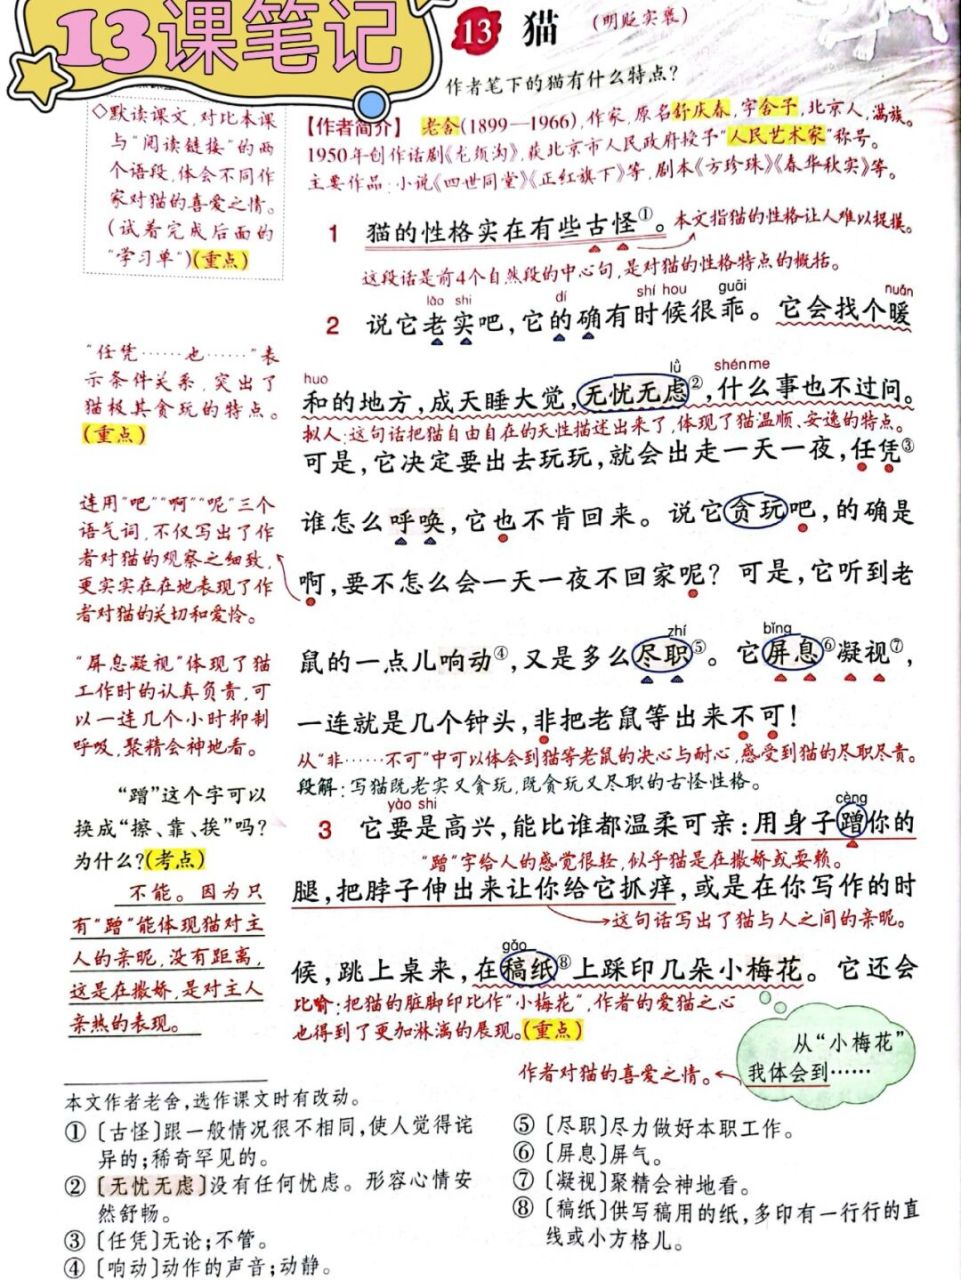 13课笔记
13 猫 (明贬实褒)
作者笔下的猫有什么特点?
◇默读课文,对比本课
与“阅读链接”的两
个语段,体会不同作
家对猫的喜爱之情。
(试着完成后面的
“学习单”)(重点)
【作者简介】 老舍(1899—1966),作家,原名舒庆春,字舍予,北京人,满族。
1950年创作话剧《龙须沟》,获北京市人民政府授予“人民艺术家”称号。
主要作品:小说《四世同堂》《正红旗下》等,剧本《方珍珠》《春华秋实》等。
1 猫的性格实在有些古怪①。本文指猫的性格让人难以捉摸。
这段话是前4个自然段的中心句,是对猫的性格特点的概括。
lǎo shi dí shí hou guāi nuǎn
2 说它老实吧,它的确有时候很乖。它会找个暖
“任凭……也……”表
示条件关系,突出了
猫极其贪玩的特点。
(重点)
huo lǜ shén me
和的地方,成天睡大觉,无忧无虑②,什么事也不过问。
拟人:这句话把猫自由自在的天性描述出来了,体现了猫温顺、安逸的特点。
可是,它决定要出去玩玩,就会出走一天一夜,任凭③
谁怎么呼唤,它也不肯回来。说它贪玩吧,的确是
啊,要不怎么会一天一夜不回家呢?可是,它听到老
连用“吧”“啊”“呢”三个
语气词,不仅写出了作
者对猫的观察之细致,
更实实在在地表现了作
者对猫的关切和爱怜。
zhí bǐng
鼠的一点儿响动④,又是多么尽职⑤。它屏息⑥凝视⑦,
一连就是几个钟头,非把老鼠等出来不可!
“屏息凝视”体现了猫
工作时的认真负责,可
以一连几个小时抑制
呼吸,聚精会神地看。
从“非……不可”中可以体会到猫等老鼠的决心与耐心,感受到猫的尽职尽责。
段解:写猫既老实又贪玩,既贪玩又尽职的古怪性格。
yào shi cèng
3 它要是高兴,能比谁都温柔可亲:用身子蹭你的
“蹭”字给人的感觉很轻,似乎猫是在撒娇或耍赖。
腿,把脖子伸出来让你给它抓痒,或是在你写作的时
→这句话写出了猫与人之间的亲昵。
“蹭”这个字可以
换成“擦、靠、挨”吗?
为什么?(考点)
不能。因为只
有“蹭”能体现猫对主
人的亲昵,没有距离,
这是在撒娇,是对主人
亲热的表现。
gǎo
候,跳上桌来,在稿纸⑧上踩印几朵小梅花。它还会
比喻:把猫的脏脚印比作“小梅花”,作者的爱猫之心
也得到了更加淋漓的展现。(重点)
从“小梅花”
我体会到……
作者对猫的喜爱之情。
本文作者老舍,选作课文时有改动。
①〔古怪〕跟一般情况很不相同,使人觉得诧
异的;稀奇罕见的。
②〔无忧无虑〕没有任何忧虑。形容心情安
然舒畅。
③〔任凭〕无论;不管。
④〔响动〕动作的声音;动静。
⑤〔尽职〕尽力做好本职工作。
⑥〔屏息〕屏气。
⑦〔凝视〕聚精会神地看。
⑧〔稿纸〕供写稿用的纸,多印有一行行的直
线或小方格儿。